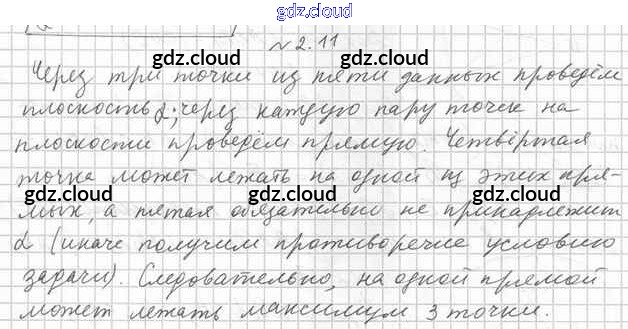 gdz.cloud
№ 2.11
gdz.cloud gdz.cloud
Через три точки из пяти данных проведём
плоскость α; через каждую пару точек на
gdz.cloud gdz.cloud
плоскости проведём прямую. Четвёртая
точка может лежать на одной из этих пря-
gdz.cloud gdz.cloud gdz.cloud
мых, а пятая обязательно не принадлежит
α (иначе получим противоречие условию
задачи). Следовательно, на одной прямой
gdz.cloud gdz.cloud
может лежать максимум 3 точки.